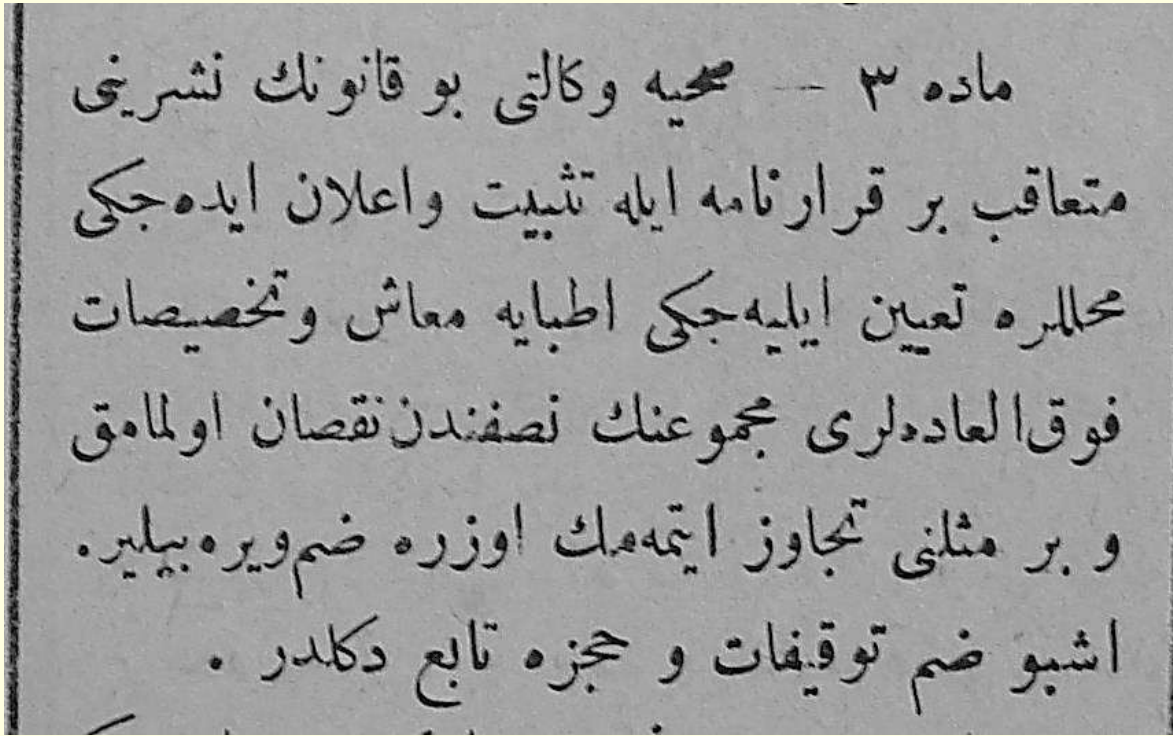 ماده ۳ — صحیه وکالتی بو قانونك نشرینی
متعاقب بر قرارنامه ایله تثبیت واعلان ایده‌جکی
محللره تعیین ایلیه‌جکی اطبایه معاش وتخصیصات
فوق‌العاده‌لری مجموعنك نصفندن نقصان اولمامق
و بر مثلنی تجاوز ایتمه‌مك اوزره ضم ویره بیلیر.
اشبو ضم توقیفات و حجزه تابع دکلدر .